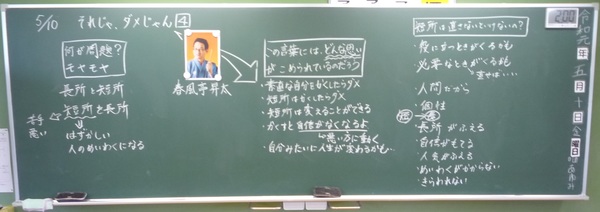 5/10 それじゃ、ダメじゃん 4
何が問題?
モヤモヤ
長所と短所
短所も長所
苦手
悪い
はずかしい
人のめいわくになる
春風亭昇太
この言葉には、どんな思い
がこめられているのだろう
・素直な自分をかくしたらダメ
・短所はかくしたらダメ
・短所は変えることができる
・かくすと自信がなくなるよ
→悪い方に動く
・自分みたいに人生が変わるかも…
短所は直さないといけないの?
・役に立つときがくるかも
・必要なときがくるかも
・人間だから
・個性
・長所がふえる
・自信がもてる
・人気がふえる
・めいわくがかからない
・きらわれない
令和元年五月十日金曜日